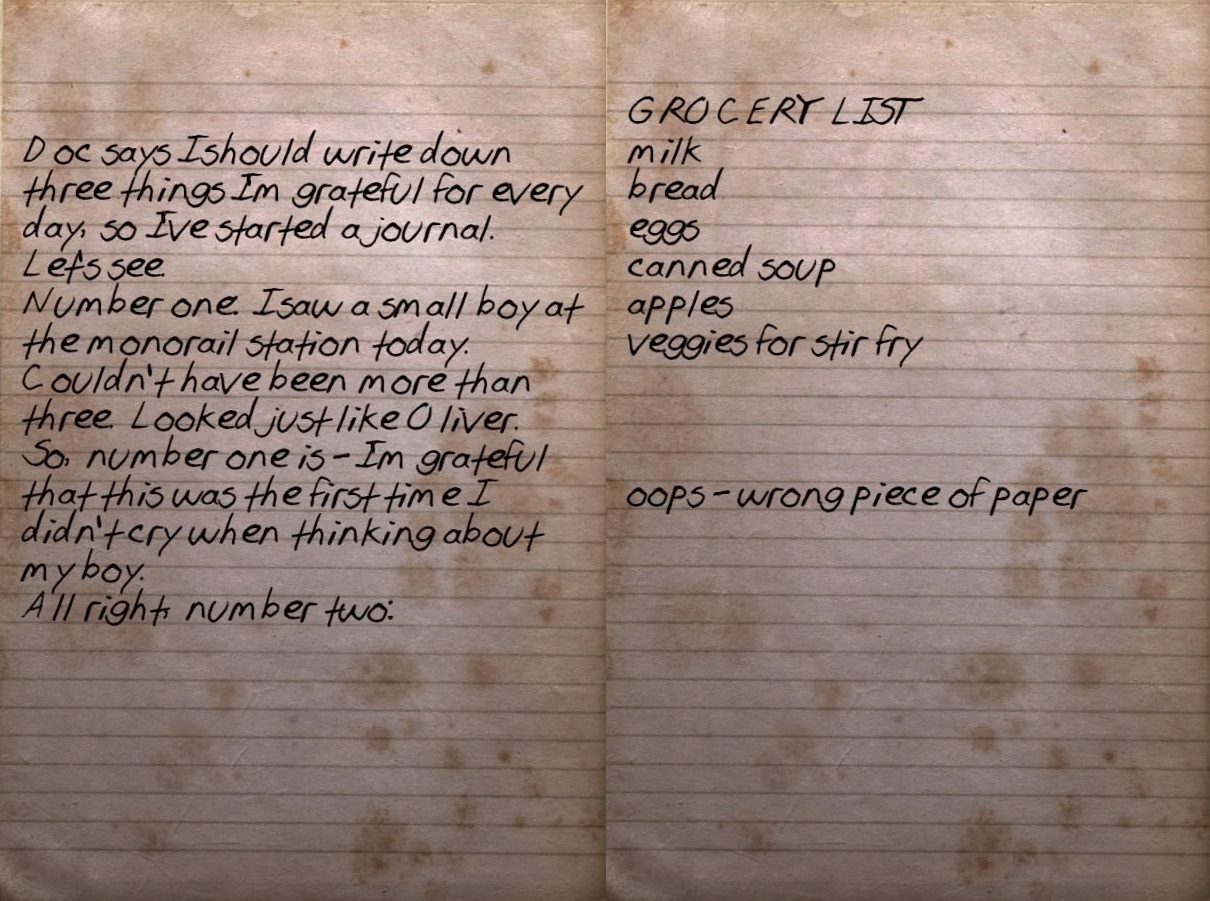 Doc says I should write down
three things Im grateful for every
day, so Ive started a journal.
Lets see.
Number one. I saw a small boy at
the monorail station today.
Couldn't have been more than
three. Looked just like Oliver.
So, number one is - Im grateful
that this was the first time I
didn't cry when thinking about
my boy.
All right, number two:
GROCERY LIST
milk
bread
eggs
canned soup
apples
veggies for stir fry
oops - wrong piece of paper